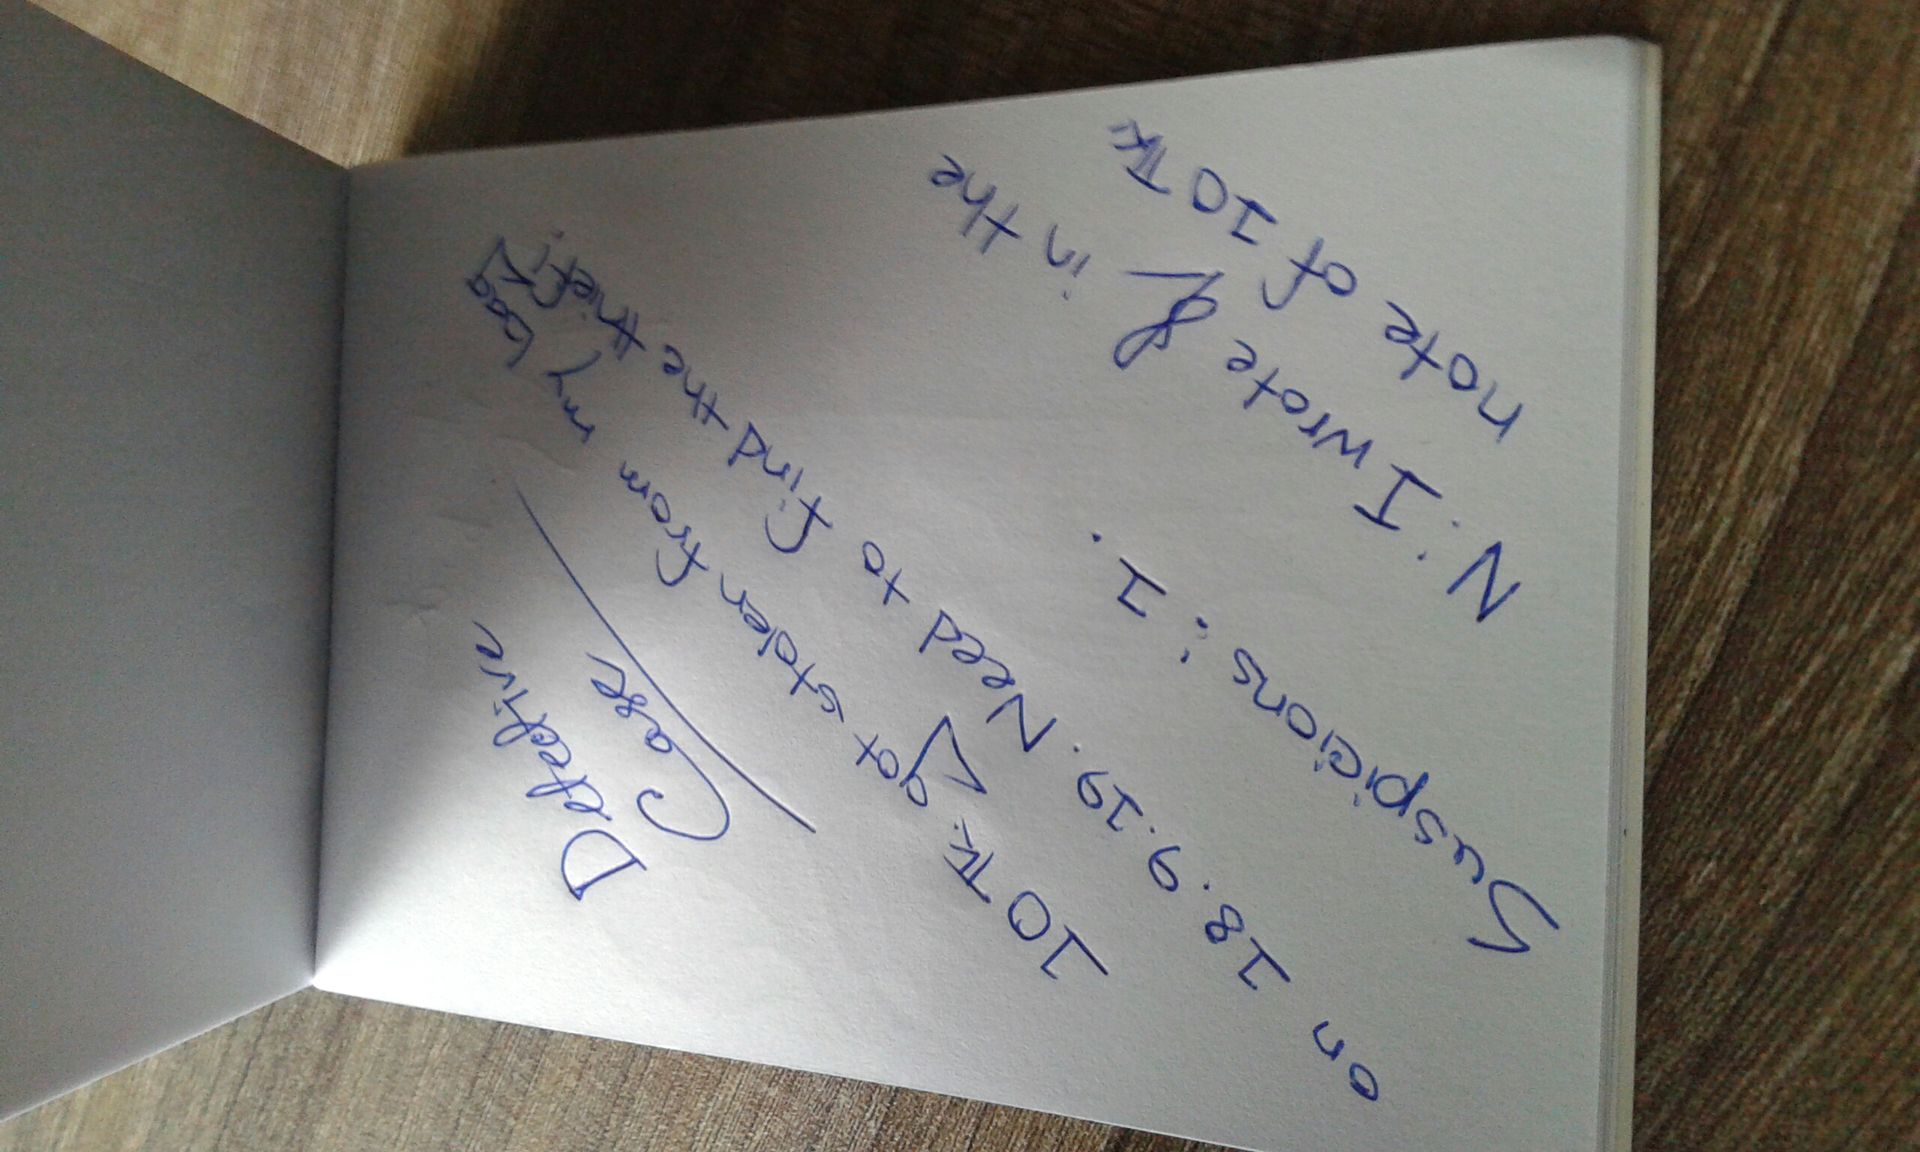 Detective
Case
10 Tk. got stolen from my bag
on 18.9.19. Need to find the thief.
Suspicions: 1.
N: I wrote in the
note of 10 Tk